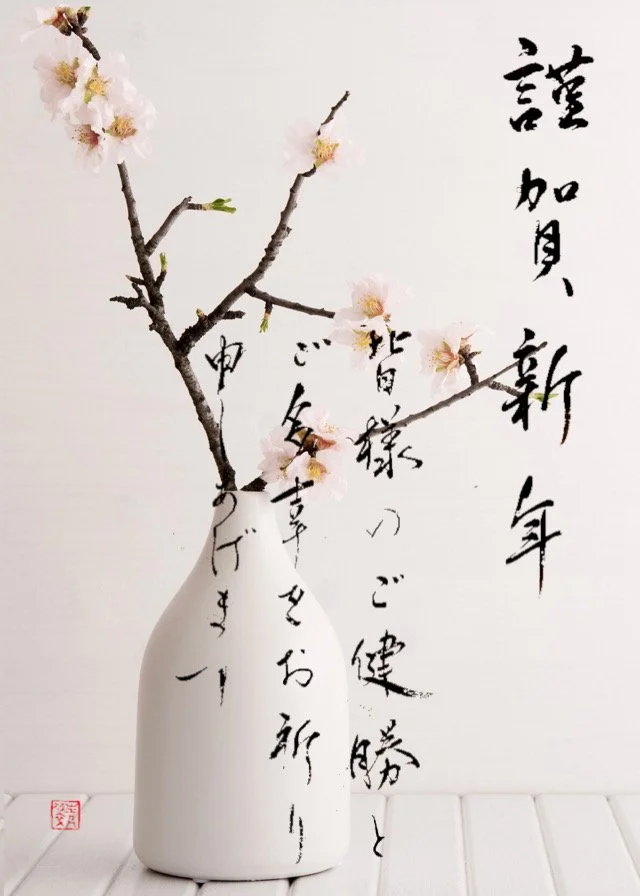 謹賀新年
皆様のご健勝と
ご多幸をお祈り
申しあげます